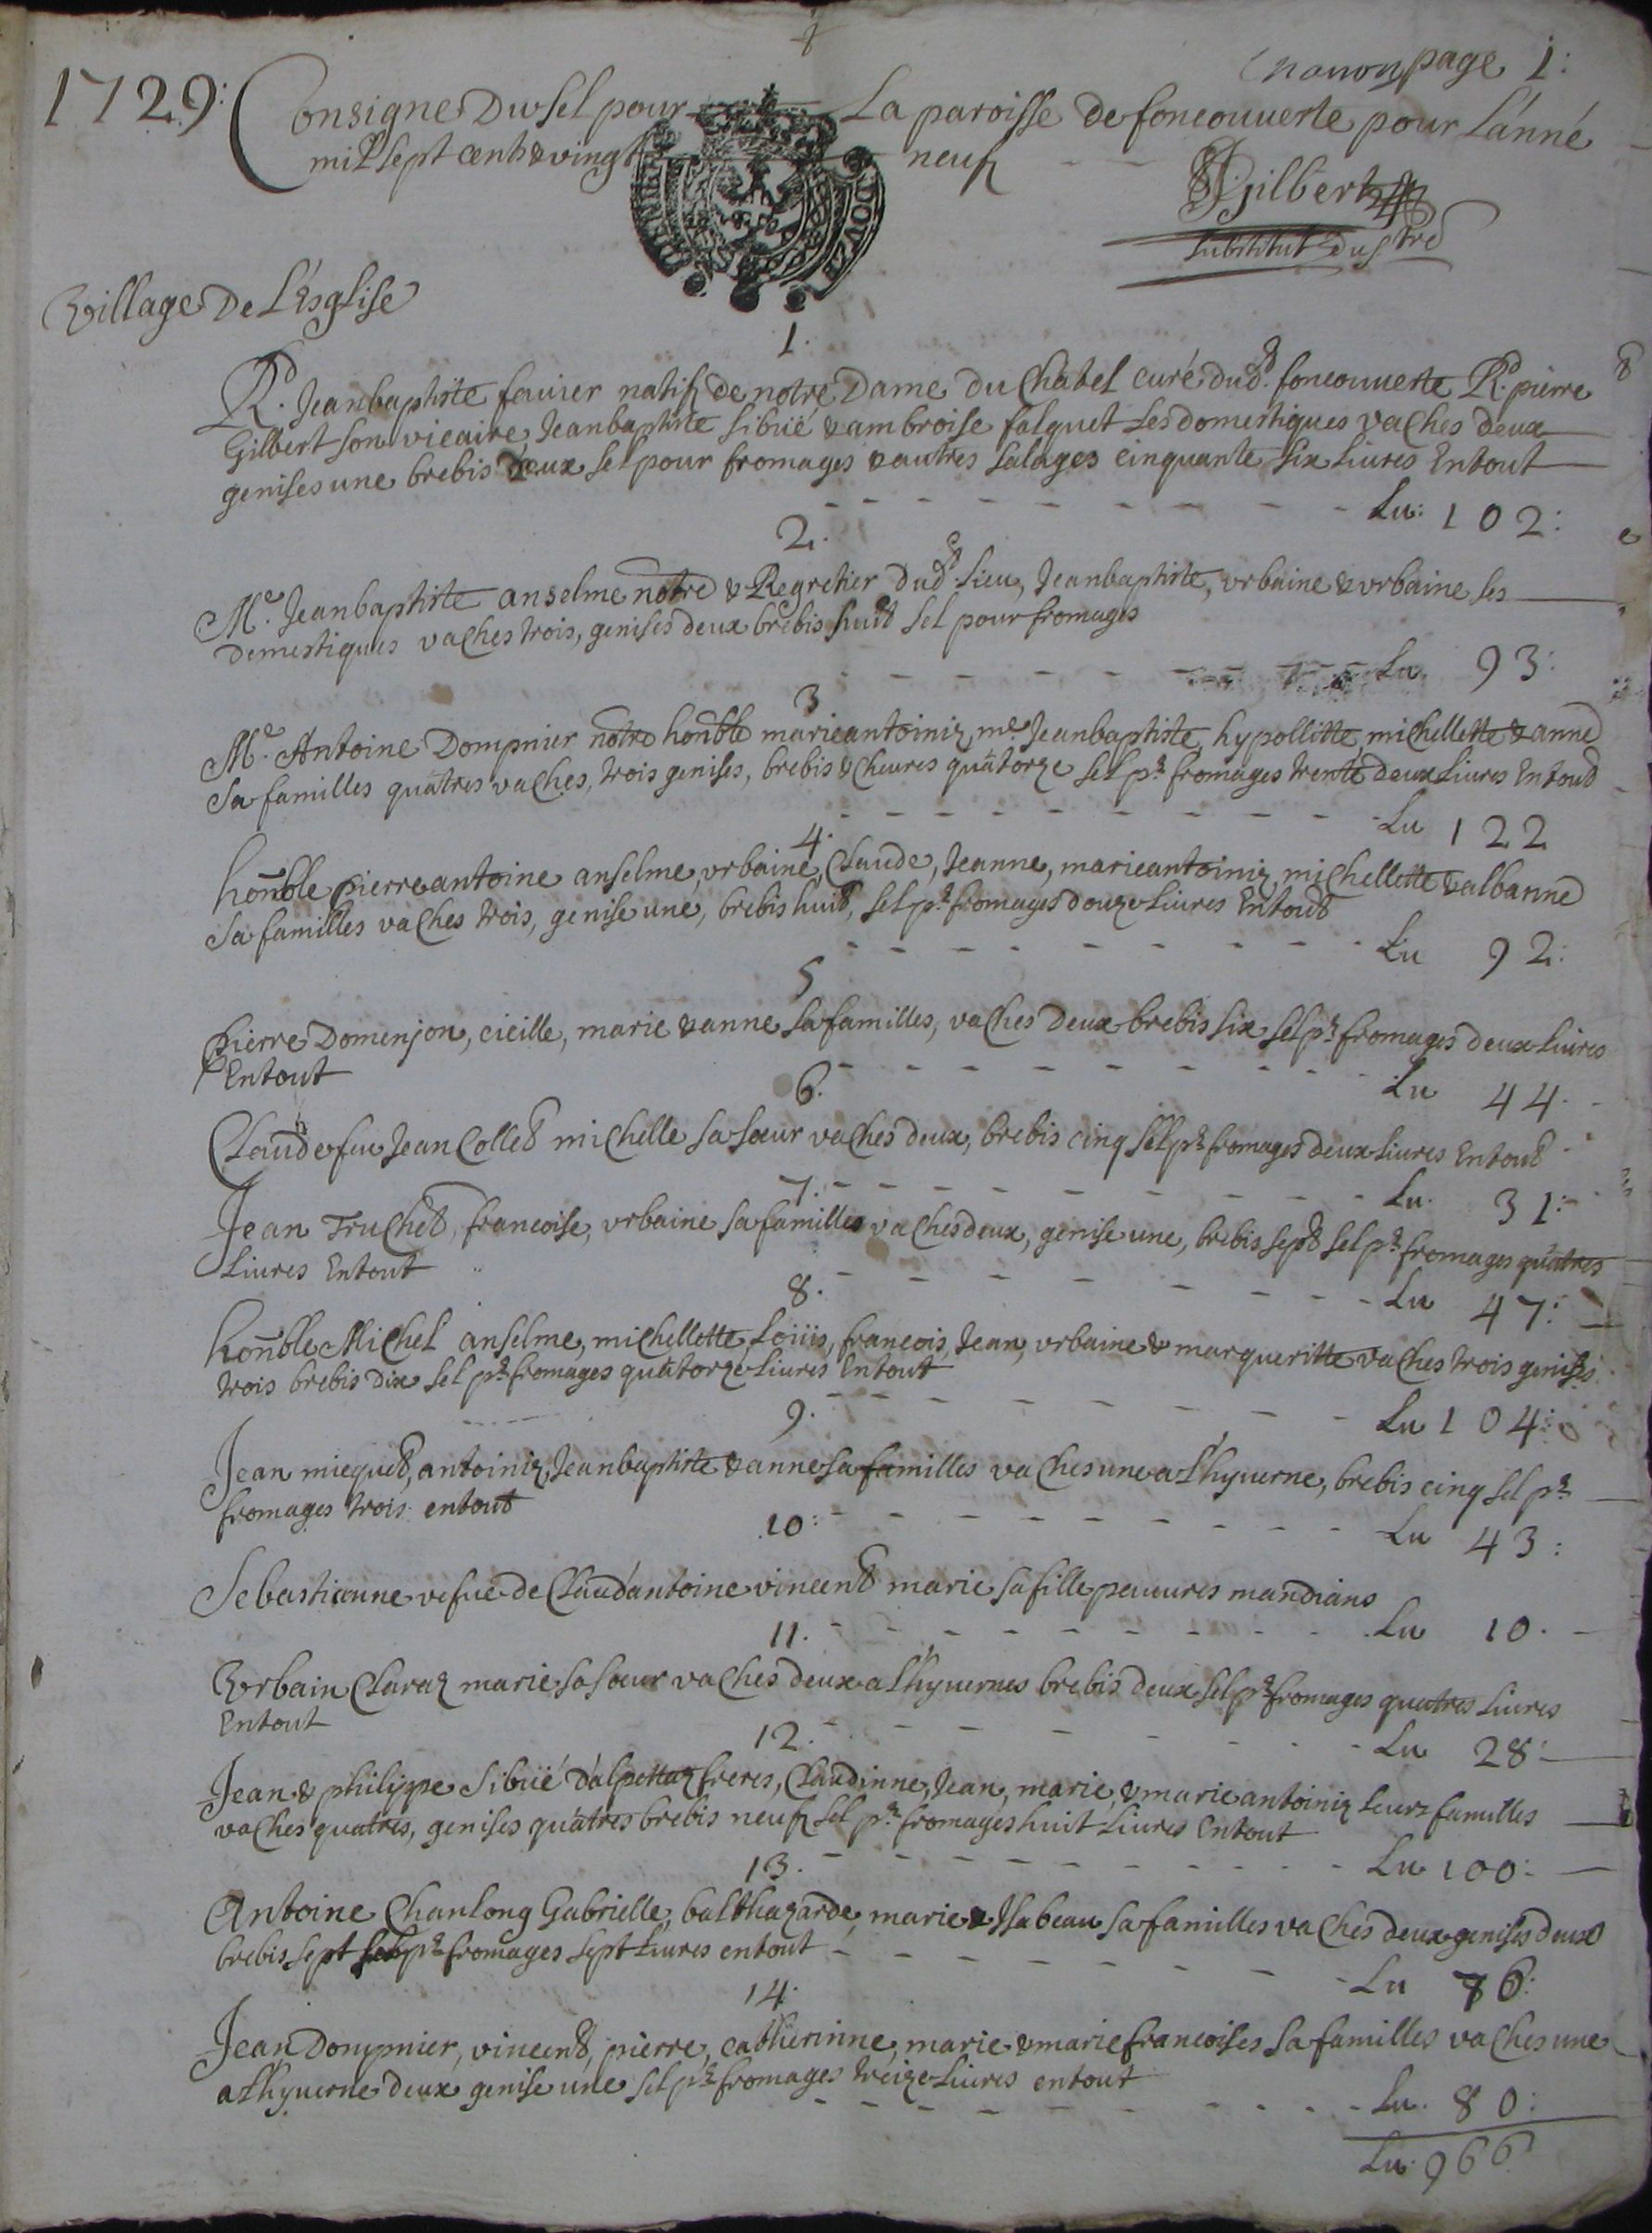 page 1:
1729: Consigne Du sel pour La paroisse de foncouuerte pour L'anné
mil sept cents & vingt neuf
Gilbert
substitut du
Village De L'Esglise
1.
Rd. Jeanbaptiste fauier natif de notre Dame Du Chatel curé dud. foncouuerte Rd. pierre
Gilbert son vicaire Jeanbaptiste sibué & ambroise falquet ses domestiques vaches deux
genises une brebis deux sel pour fromages & autres salages cinquante six Liures Entout
Lu: 102:
2.
Me. Jeanbaptiste anselme notre & Regretier dud. Lieu, Jeanbaptiste, vrbaine & vrbaine ses
demestiques vaches trois, genises deux brebis huit sel pour fromages
Lu. 93:
3
Me. Antoine Dompnier notre honble marieantoiniz, me. Jeanbaptiste, hypollitte, michellette & anne
sa familles quatres vaches, trois genises, brebis & cheures quatorze sel pr. fromages trente deux Liures Entout
Lu 122
4.
honnble pierreantoine anselme, vrbaine, Claude, Jeanne, marieantoiniz michellette & albanne
sa familles vaches trois, genise une, brebis huit, sel pr. fromages douze Liures Entout
Lu 92:
5
Pierre Domenjon, cicille, marie & anne sa familles, vaches deux brebis six sel pr. fromages deux Liures
Entout
Lu 44.
6.
Claude fu Jean Collet michelle sa sœur vaches deux, brebis cinq sel pr. fromages deux Liures Entout
Lu. 31:
7.
Jean Truchet, francoise, vrbaine sa familles vaches deux, genise une, brebis sept sel pr. fromages quatres
Liures Entout
Lu 47:
8.
honnble Michel anselme, michellette, Loüis, francois, Jean, vrbaine & margueritte vaches trois genises
trois brebis dix sel pr. fromages quatorze Liures Entout
Lu 104:
9.
Jean micquet, antoiniz, Jeanbaptiste & anne sa familles vaches une a L'hyuerne, brebis cinq sel pr.
fromages trois entout
Lu 43:
10:
Sebastianne vefue de Claud'antoine vincent marie sa fille pauures mandians
Lu 10.
11.
Vrbain Claraz marie sa sœur vaches deux a L'hyuernes brebis deux sel pr. fromages quatres Liures
Entout
Lu 28:
12.
Jean & philippe sibué d'alpettaz freres, Claudinne, Jean, marie, & marieantoiniz Leurs familles
vaches quatres, genises quatres brebis neuf sel pr. fromages huit Liures Entout
Lu 100:
13.
Antoine Chanlong Gabrielle, balthazarde, marie & Isabeau sa familles vaches deux genises deux
brebis sept sel pr. fromages sept Liures entout
Lu 76:
14.
Jean Dompnier, vincent, pierre, catherinne, marie & mariefrancoises sa familles vaches une
a L'hyuerne deux genise une sel pr. fromages treize Liures entout
Lu. 80:
Lu: 966